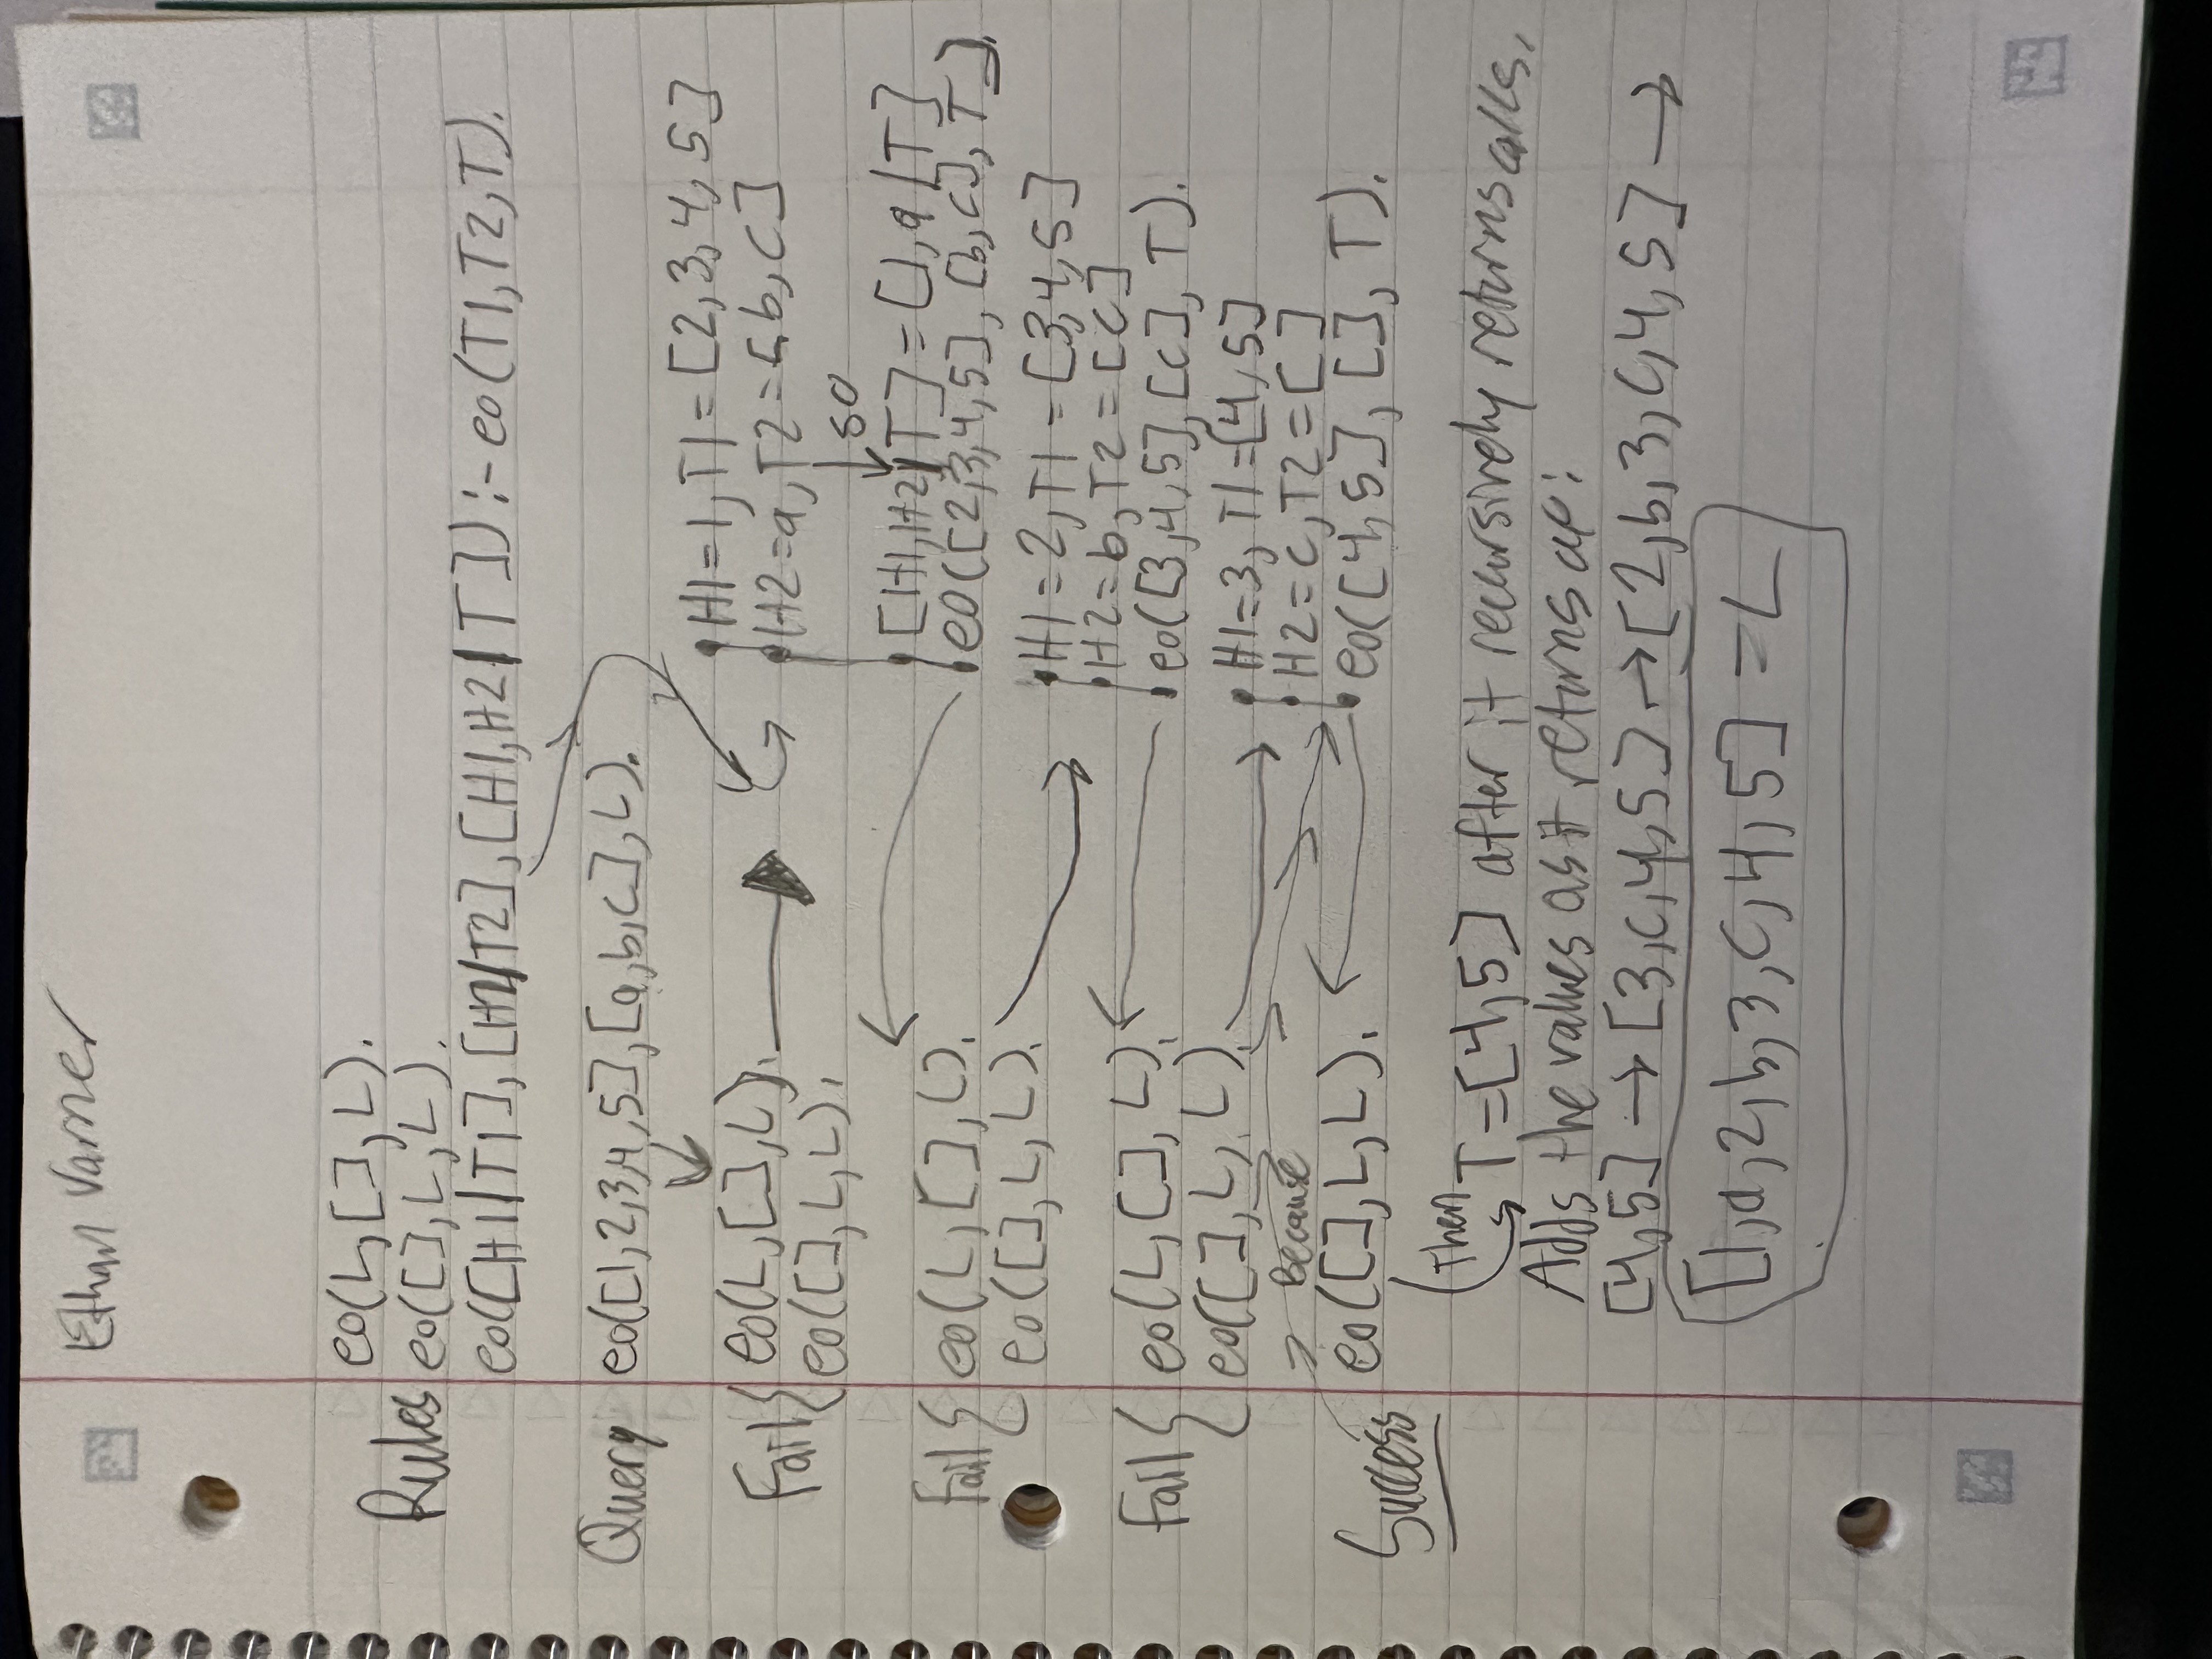 Ethan Varner
Rules
eo(L,[],L).
eo([],L,L).
eo([H1|T1],[H2|T2],[H1,H2|T]):-eo(T1,T2,T).
Query eo([1,2,3,4,5],[a,b,c],L).
H1=1,T1=[2,3,4,5]
H2=a,T2=[b,c]
Fail{ eo(L,[],L).
eo([],L,L).
so
[H1,H2|T]=[1,a|T]
eo([2,3,4,5],[b,c],T).
Fail{ eo(L,[],L).
eo([],L,L).
H1=2,T1=[3,4,5]
H2=b,T2=[c]
eo([3,4,5],[c],T).
Fail{ eo(L,[],L).
eo([],L,L).
H1=3,T1=[4,5]
H2=c,T2=[]
eo([4,5],[],T).
Because
Success eo([],L,L).
Then T=[4,5] after it recursively returns calls.
Adds the values as it returns up:
[4,5]→[3,c,4,5]→[2,b,3,c,4,5]→
[1,a,2,b,3,c,4,5]=L